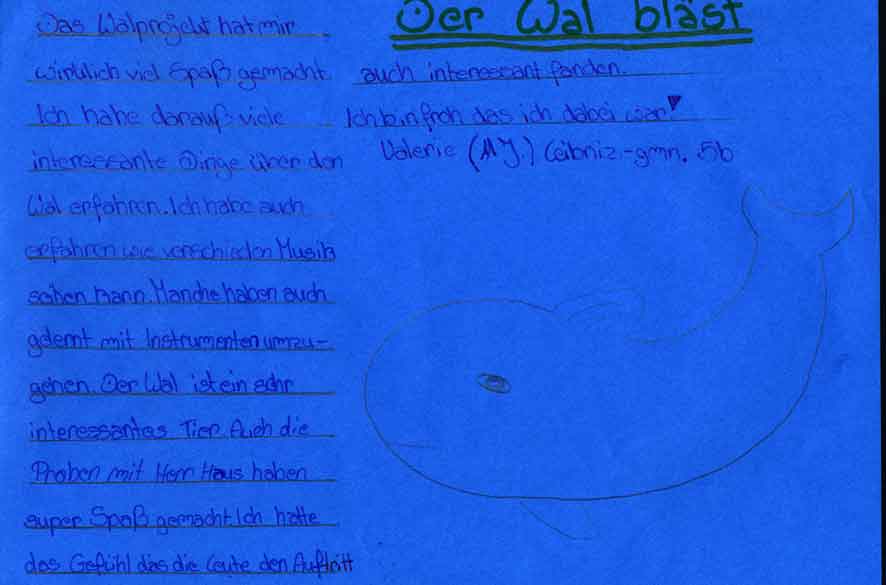 Der Wal bläst
Das Walprojekt hat mir
wirklich viel Spaß gemacht.
Ich habe darauß viele
interessante Dinge über den
Wal erfahren. Ich habe auch
erfahren wie verschieden Musik
seihen kann. Manche haben auch
gelernt mit Instrumenten umzu-
gehen. Der Wal ist ein sehr
interessantes Tier. Auch die
Proben mit Herr Haus haben
super Spaß gemacht. Ich hatte
das Gefühl das die Leute den Auftritt
auch interessant fanden.
Ich bin froh das ich dabei war!
Valerie (11 J.) Leibniz-gmn. 5b